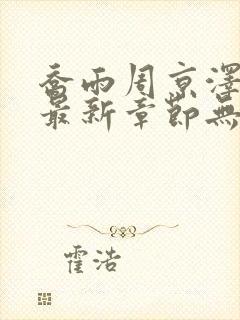 喬雨周京澤
最新章節無
霍浩